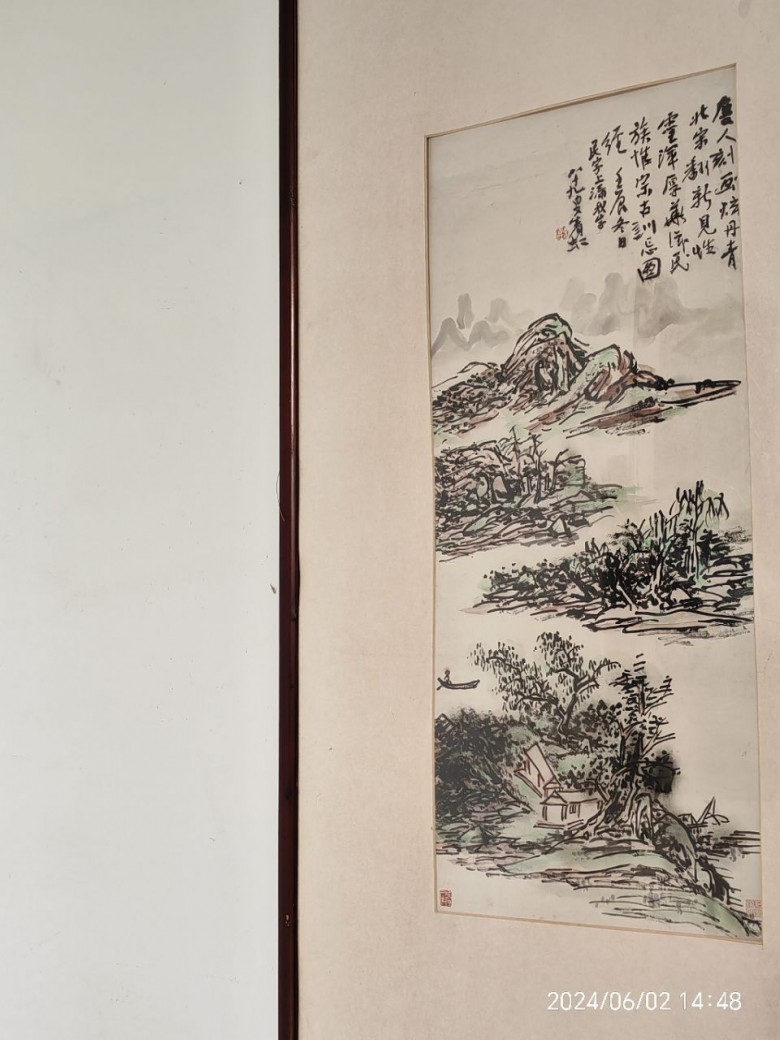 唐人刻画炫丹青
北宋翻新見性
靈渾厚華滋民
族惟宗古訓忌圖
經 壬辰冬日
民字上漏我字
八十九叟賓虹
2024/06/02 14:48